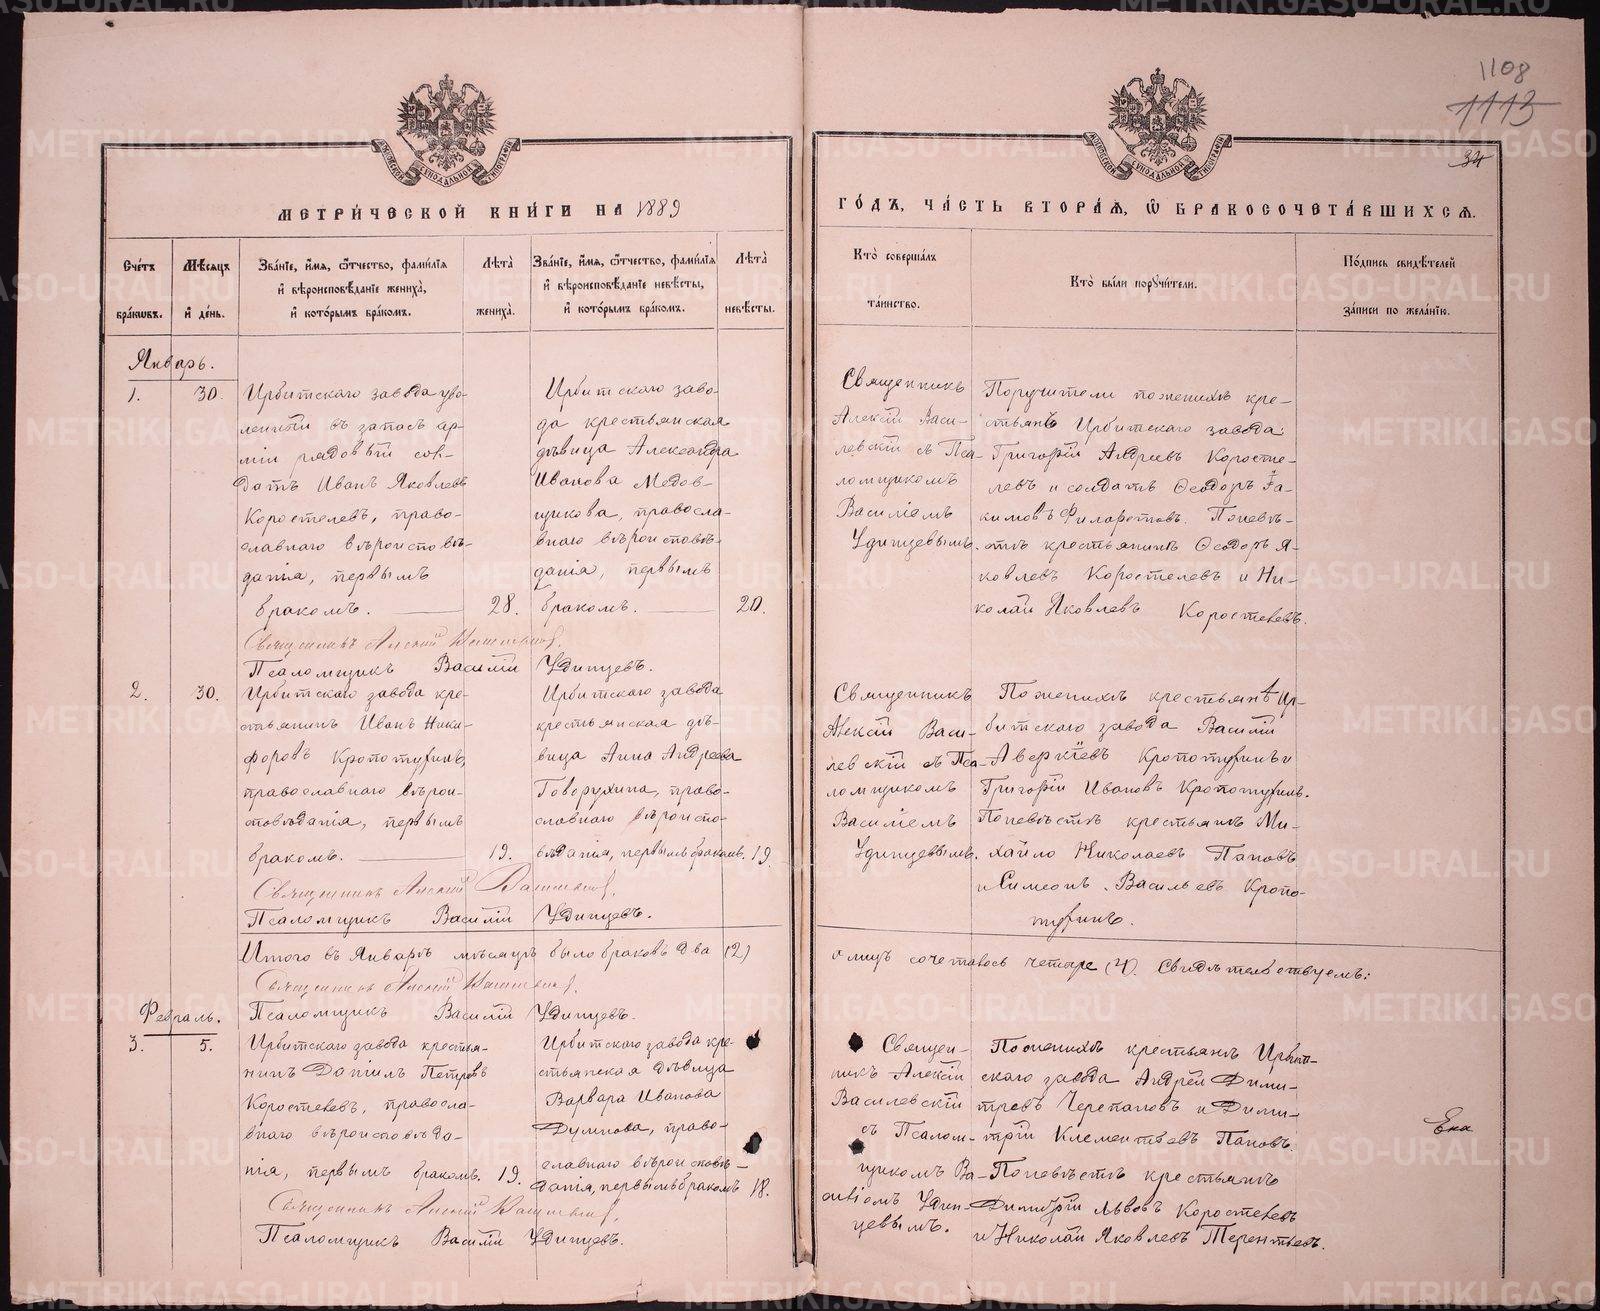 1108
1113
34
МЕТРИ́ЧЕСКОЙ КНИ́ГИ НА 1889
ГО́ДЪ, ЧА́СТЬ ВТОРА́Я, Ѡ БРАКОСОЧЕТА́ВШИХСЯ.
Сче́тъ бра́кѡвъ.
Мѣ́сяцъ и́ де́нь.
Зва́нїе, и҆́мя, ѻ҆́тчество, фами́лїя и҆ вѣроисповѣ́данїе жениха̀, и҆ кото́рымъ бра́комъ.
Лѣ́та жениха̀.
Зва́нїе, и҆́мя, ѻ҆́тчество, фами́лїя и҆ вѣроисповѣ́данїе невѣ́сты, и҆ кото́рымъ бра́комъ.
Лѣ́та невѣ́сты.
Кто̀ соверша́лъ та́инство.
Кто̀ бы́ли порꙋчи́тели.
По́дпись свидѣ́телей за́писи по жела́нїю.
Январь.
1.
30.
Ирбитскаго завода уво-
ленный въ запасъ ар-
міи рядовый сол-
датъ Иванъ Яковлевъ
Коростелевъ, право-
славнаго вѣроисповѣ-
данія, первымъ
бракомъ.
28.
Ирбитскаго заво-
да крестьянская
дѣвица Александра
Иванова Медов-
щикова, правосла-
внаго вѣроисповѣ-
данія, первымъ
бракомъ.
20.
Священникъ
Алексій Васи-
левскій съ Пса-
ломщикомъ
Василіемъ
Удинцевымъ.
Поручители по женихѣ кре-
стьянъ Ирбитскаго завода:
Григорій Андреевъ Коросте-
левъ и солдатъ Ѳеодоръ Га-
кимовъ Филаретовъ. По невѣ-
стѣ крестьянинъ Ѳеодоръ Я-
ковлевъ Коростелевъ и Ни-
колай Яковлевъ Коростелевъ.
Священникъ Алексій Василевскій.
Псаломщикъ Василій Удинцевъ.
2.
30.
Ирбитскаго завода кре-
стьянинъ Иванъ Ники-
форовъ Кропотухинъ,
православнаго вѣрои-
сповѣданія, первымъ
бракомъ.
19.
Ирбитскаго завода
крестьянская дѣ-
вица Анна Андреева
Говорухина, право-
славнаго вѣроиспо-
вѣданія, первымъ бракомъ.
19.
Священникъ
Алексій Васи-
левскій съ Пса-
ломщикомъ
Василіемъ
Удинцевымъ.
По женихѣ крестьянѣ Ир-
битскаго завода Василій
Аверкіевъ Кропотухинъ и
Григорій Ивановъ Кропотухинъ.
По невѣстѣ крестьянъ Ми-
хайло Николаевъ Паповъ
и Симеонъ Васильевъ Кропо-
тухинъ.
Священникъ Алексій Василевскій.
Псаломщикъ Василій Удинцевъ.
Итого въ Январѣ мѣсяцѣ было браковъ два (2)
а лицъ сочеталось четыре (4). Свидѣтельствуемъ:
Священникъ Алексій Василевскій.
Псаломщикъ Василій Удинцевъ.
Февраль.
3.
5.
Ирбитскаго завода крестья-
нинъ Даніилъ Петровъ
Коростелевъ, правосла-
внаго вѣроисповѣда-
нія, первымъ бракомъ.
19.
Ирбитскаго завода кре-
стьянская дѣвица
Варвара Иванова
Думнова, право-
славнаго вѣроисповѣ-
данія, первымъ бракомъ
18.
Священ-
никъ Алексій
Василевскій
съ Псалом-
щикомъ Ва-
силіемъ Удин-
цевымъ.
По женихѣ крестьянъ Ирбит-
скаго завода Андрей Дими-
тревъ Черепановъ и Дими-
трій Клементьевъ Паповъ.
По невѣстѣ крестьянъ
Димитрій Львовъ Коростелевъ
и Николай Яковлевъ Терентьевъ.
Священникъ Алексій Василевскій.
Псаломщикъ Василій Удинцевъ.
METRIKI.GASO-URAL.RU